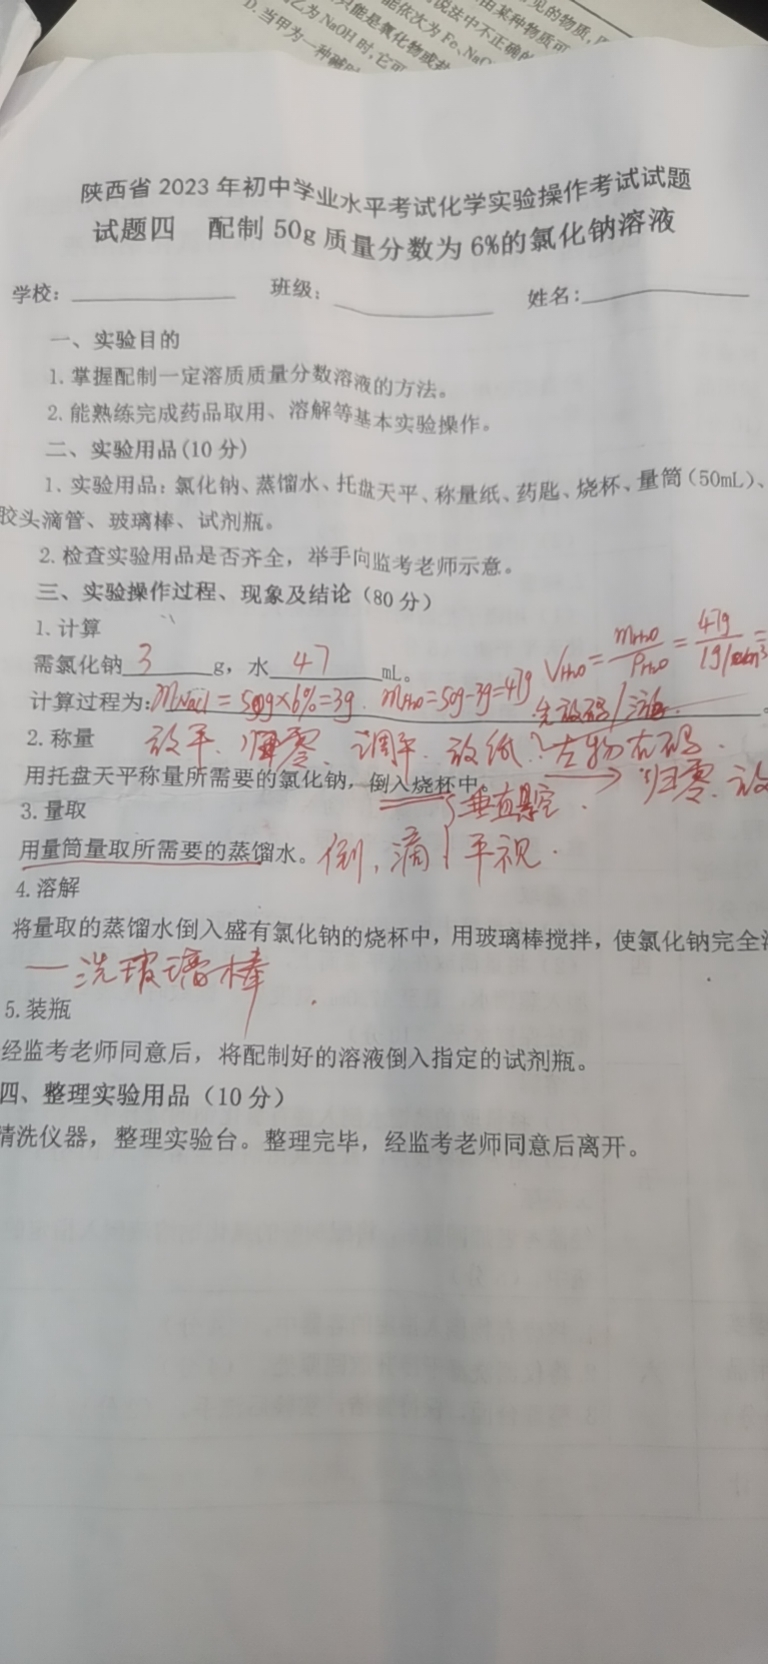 见的物质,
由某种物质可
说法中不正确的
能依次为Fe、NaC
只能是氧化物或
乙为NaOH时,它可
D.当甲为一种碱
陕西省2023年初中学业水平考试化学实验操作考试试题
试题四 配制50g质量分数为6%的氯化钠溶液
学校: 班级: 姓名:
一、实验目的
1.掌握配制一定溶质质量分数溶液的方法。
2.能熟练完成药品取用、溶解等基本实验操作。
二、实验用品(10分)
1、实验用品:氯化钠、蒸馏水、托盘天平、称量纸、药匙、烧杯、量筒(50mL)、
胶头滴管、玻璃棒、试剂瓶。
2.检查实验用品是否齐全,举手向监考老师示意。
三、实验操作过程、现象及结论(80分)
1.计算
需氯化钠 3 g,水 47 mL。 VH₂O=mH₂O/ρH₂O=47g/1g/cm³=
计算过程为:mNaCl=50g×6%=3g. mH₂O=50g-3g=47g
先放码/
2.称量 放平、归零、调平、放纸、左物右码.
用托盘天平称量所需要的氯化钠,倒入烧杯中。 → 归零、放
3.量取 垂直悬空.
用量筒量取所需要的蒸馏水。倒,滴 平视.
4.溶解
将量取的蒸馏水倒入盛有氯化钠的烧杯中,用玻璃棒搅拌,使氯化钠完全
一洗玻璃棒
5.装瓶
经监考老师同意后,将配制好的溶液倒入指定的试剂瓶。
四、整理实验用品(10分)
清洗仪器,整理实验台。整理完毕,经监考老师同意后离开。